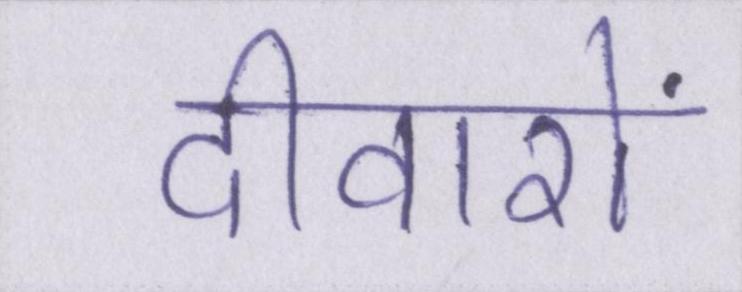 दीवारों